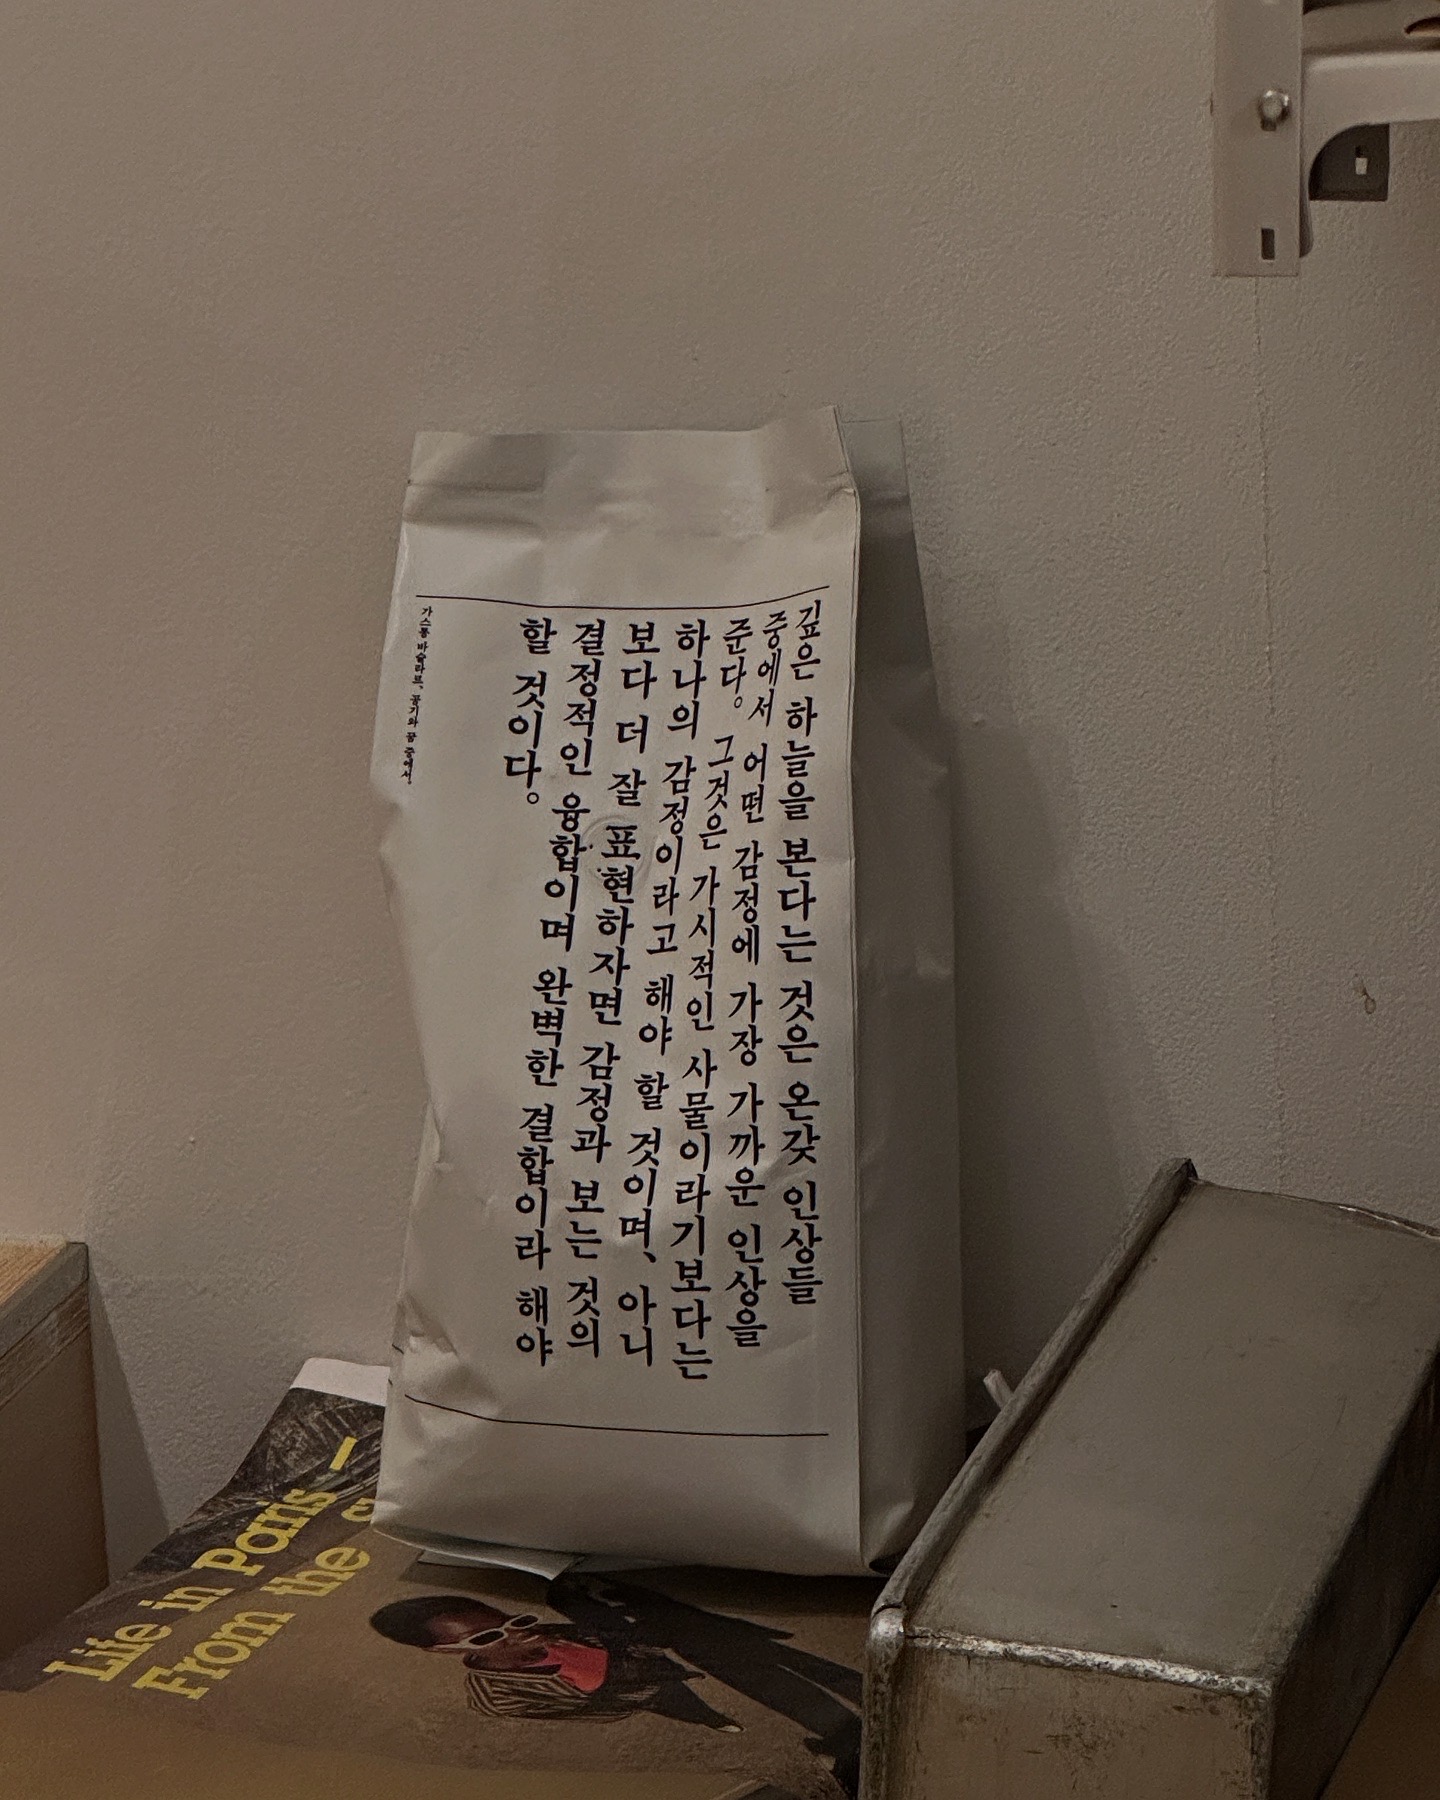 깊은 하늘을 본다는 것은 온갖 인상들
중에서 어떤 감정에 가장 가까운 인상을
준다。 그것은 가시적인 사물이라기보다는
하나의 감정이라고 해야 할 것이며、 아니
보다 더 잘 표현하자면 감정과 보는 것의
결정적인 융합이며 완벽한 결합이라 해야
할 것이다。
가스통 바슐라르, 공기와 꿈 중에서.
Life in Paris –
From the